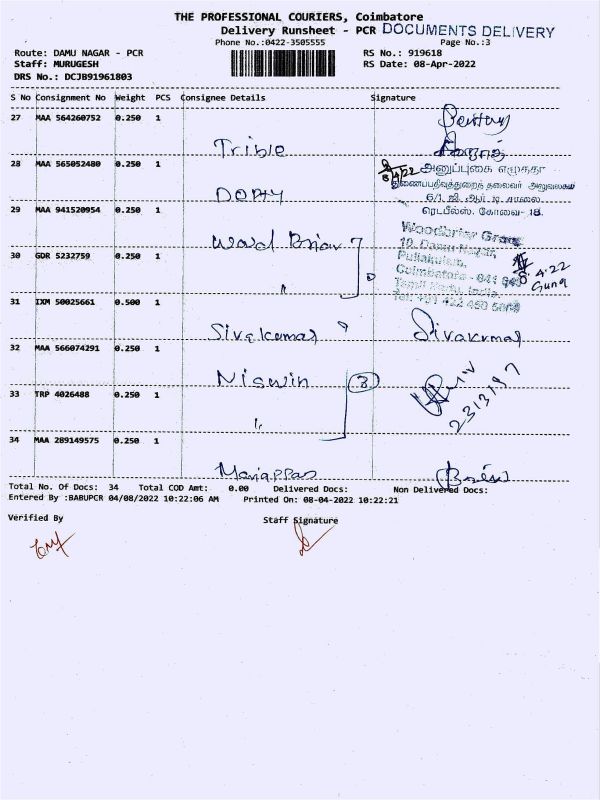 THE PROFESSIONAL COURIERS, Coimbatore
Delivery Runsheet - PCR DOCUMENTS DELIVERY
Phone No.:0422-3505555 Page No.:3
Route: DAMU NAGAR - PCR RS No.: 919618
Staff: MURUGESH RS Date: 08-Apr-2022
DRS No.: DCJB91961803
S No Consignment No Weight PCS Consignee Details Signature
27 MAA 564260752 0.250 1
Trible
28 MAA 565052480 0.250 1
அனுப்புகை எழுத்தர்
DOPHY
6/1, ஜி. ஆர். டி. சாலை,
ரெட்பீல்ஸ், கோவை - 18.
29 MAA 941520954 0.250 1
Wood Briar
Woodbriar Group
19, Damu Nagar,
Puliakulam,
30 GDR 5232759 0.250 1
Coimbatore - 641 045
Tamil Nadu, India.
〃
31 IXM 50025661 0.500 1
Sivakumar Sivakumar
32 MAA 566074291 0.250 1
Niswin
33 TRP 4026488 0.250 1
〃
34 MAA 289149575 0.250 1
Mariappan
Total No. Of Docs: 34 Total COD Amt: 0.00 Delivered Docs: Non Delivered Docs:
Entered By :BABUPCR 04/08/2022 10:22:06 AM Printed On: 08-04-2022 10:22:21
Verified By Staff Signature